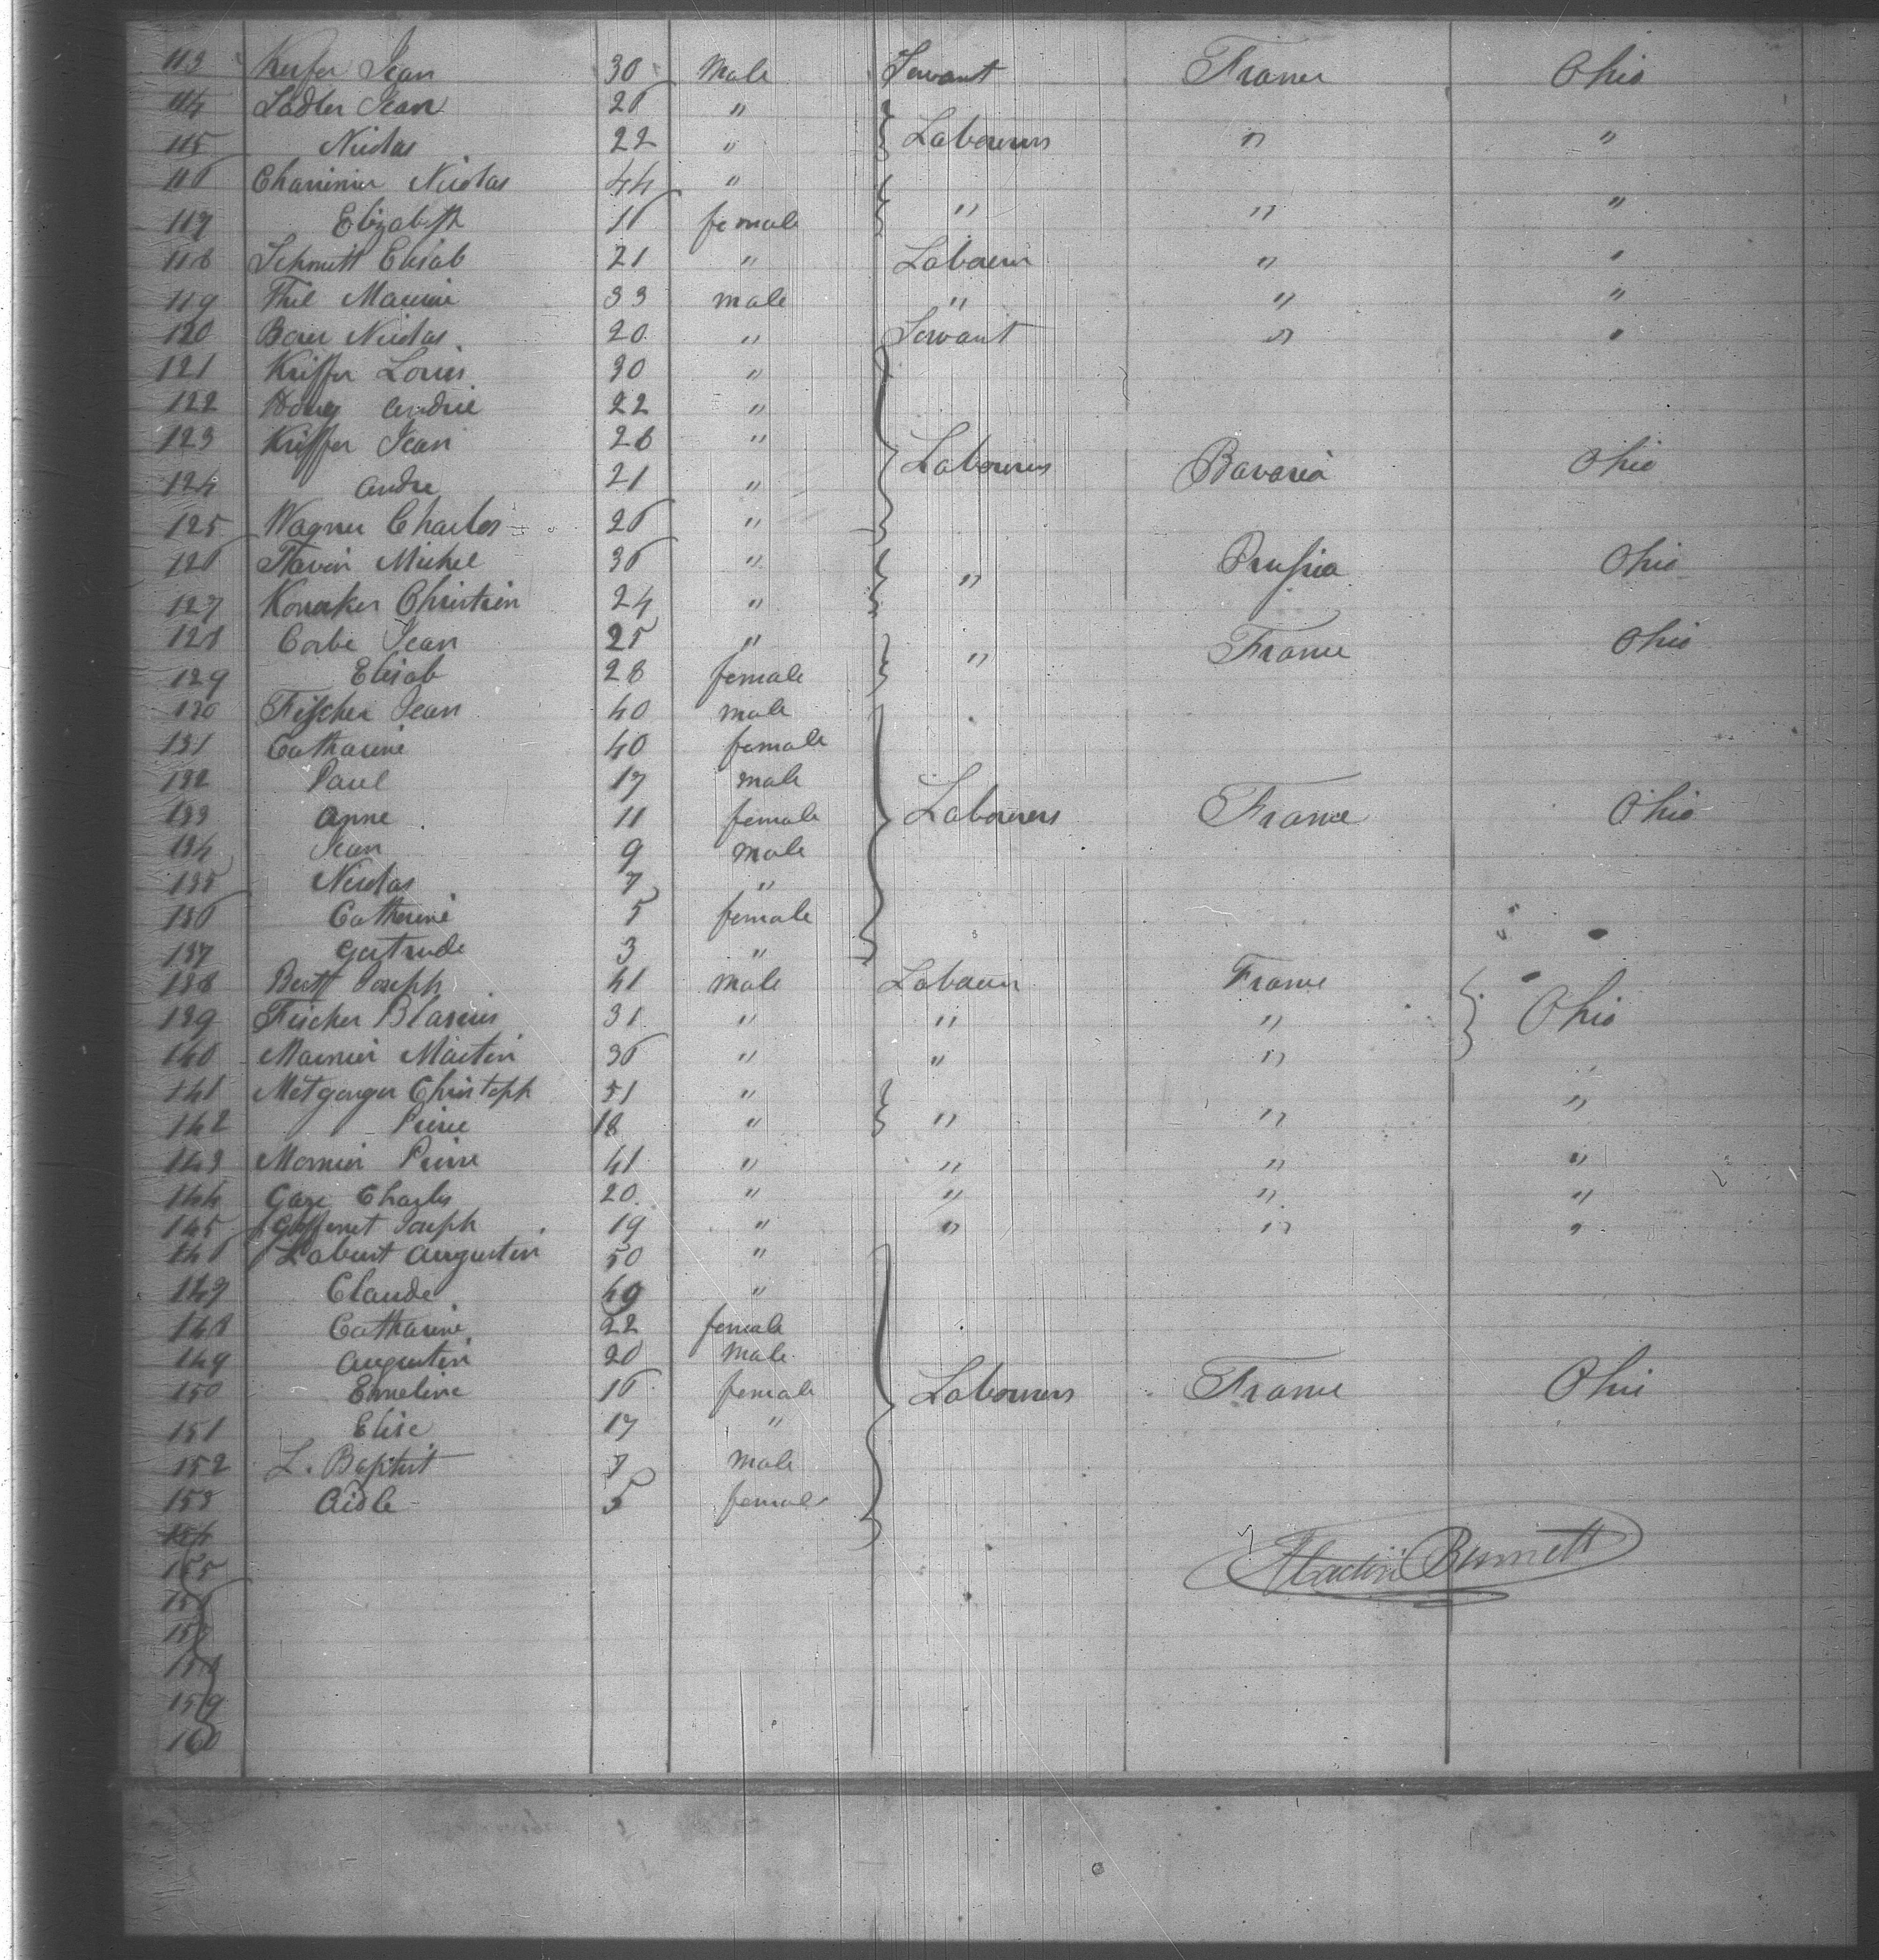 113 Keifer Jean 30 Male Servant France Ohio
114 Sadler Jean 26 "
115 Nicolas 22 " } Labourers " "
116 Nicolas 44 "
117 Elizabeth 16 female } " " "
118 Schmitt Elisab 21 " Labourer " "
119 Thil 33 male " " "
120 Nicolas 20 " Servant " "
121 Kriffer Louis 30 "
122 André 22 "
123 Kriffer Jean 26 "
124 andre 21 " } Labourers Bavaria Ohio
125 Wagner Charles 26 "
126 Michel 36 " Prussia Ohio
127 Christien 24 " } "
128 Corbe Jean 25 " France Ohio
129 Elisab 28 female } "
130 Fischer Jean 40 male
131 Catharine 40 female
132 Paul 17 male
133 anne 11 female } Labourers France Ohio
134 Jean 9 male
135 Nicolas 7 "
136 Catherine 5 female
137 gertrude 3 "
138 Joseph 41 male Labourer France
139 Fischer Blasius 31 " " " } Ohio
140 Martin 36 " " "
141 Metzenger Christoph 51 " "
142 Pierre 18 " } " "
143 Pierre 41 " " " "
144 Charles 20 " " " "
145 Joseph 19 " " " "
146 augustin 50 "
147 Claude 49 "
148 Catharine 22 female
149 augustin 20 male
150 Emeline 16 female } Labourers France Ohio
151 Elise 17 "
152 L. Baptist 7 male
153 5 female
154
155
156
157
158
159
160